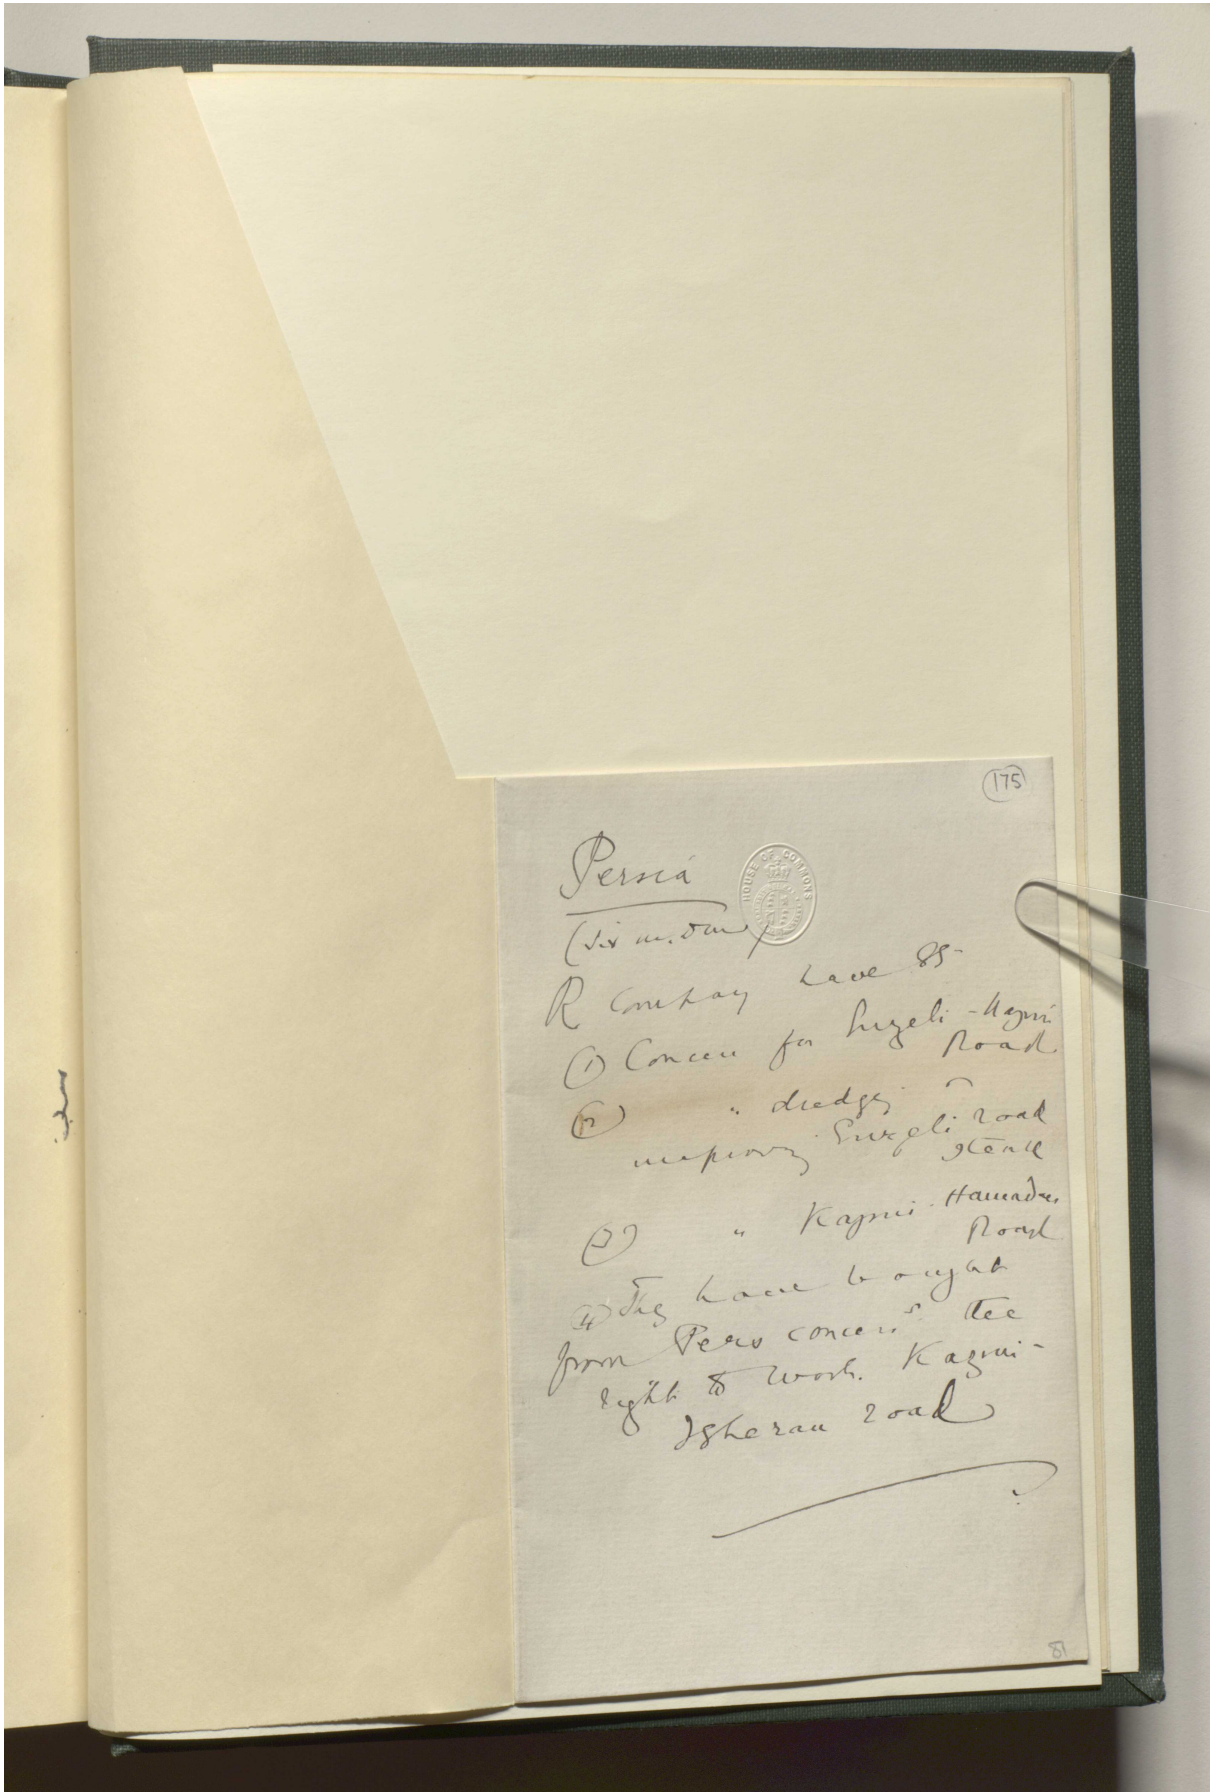 175
Persia
HOUSE OF COMMONS
(Sir M. Dur)
R Company have 85
(1) Concess for Enzeli - Kazvin
Road
(2) " dredgg &
improvg Enzeli road
stead
(3) " Kazvin - Hamadan
Road
(4) They have bought
from Pers concess.rs the
right to work Kazvin -
Teheran road
81